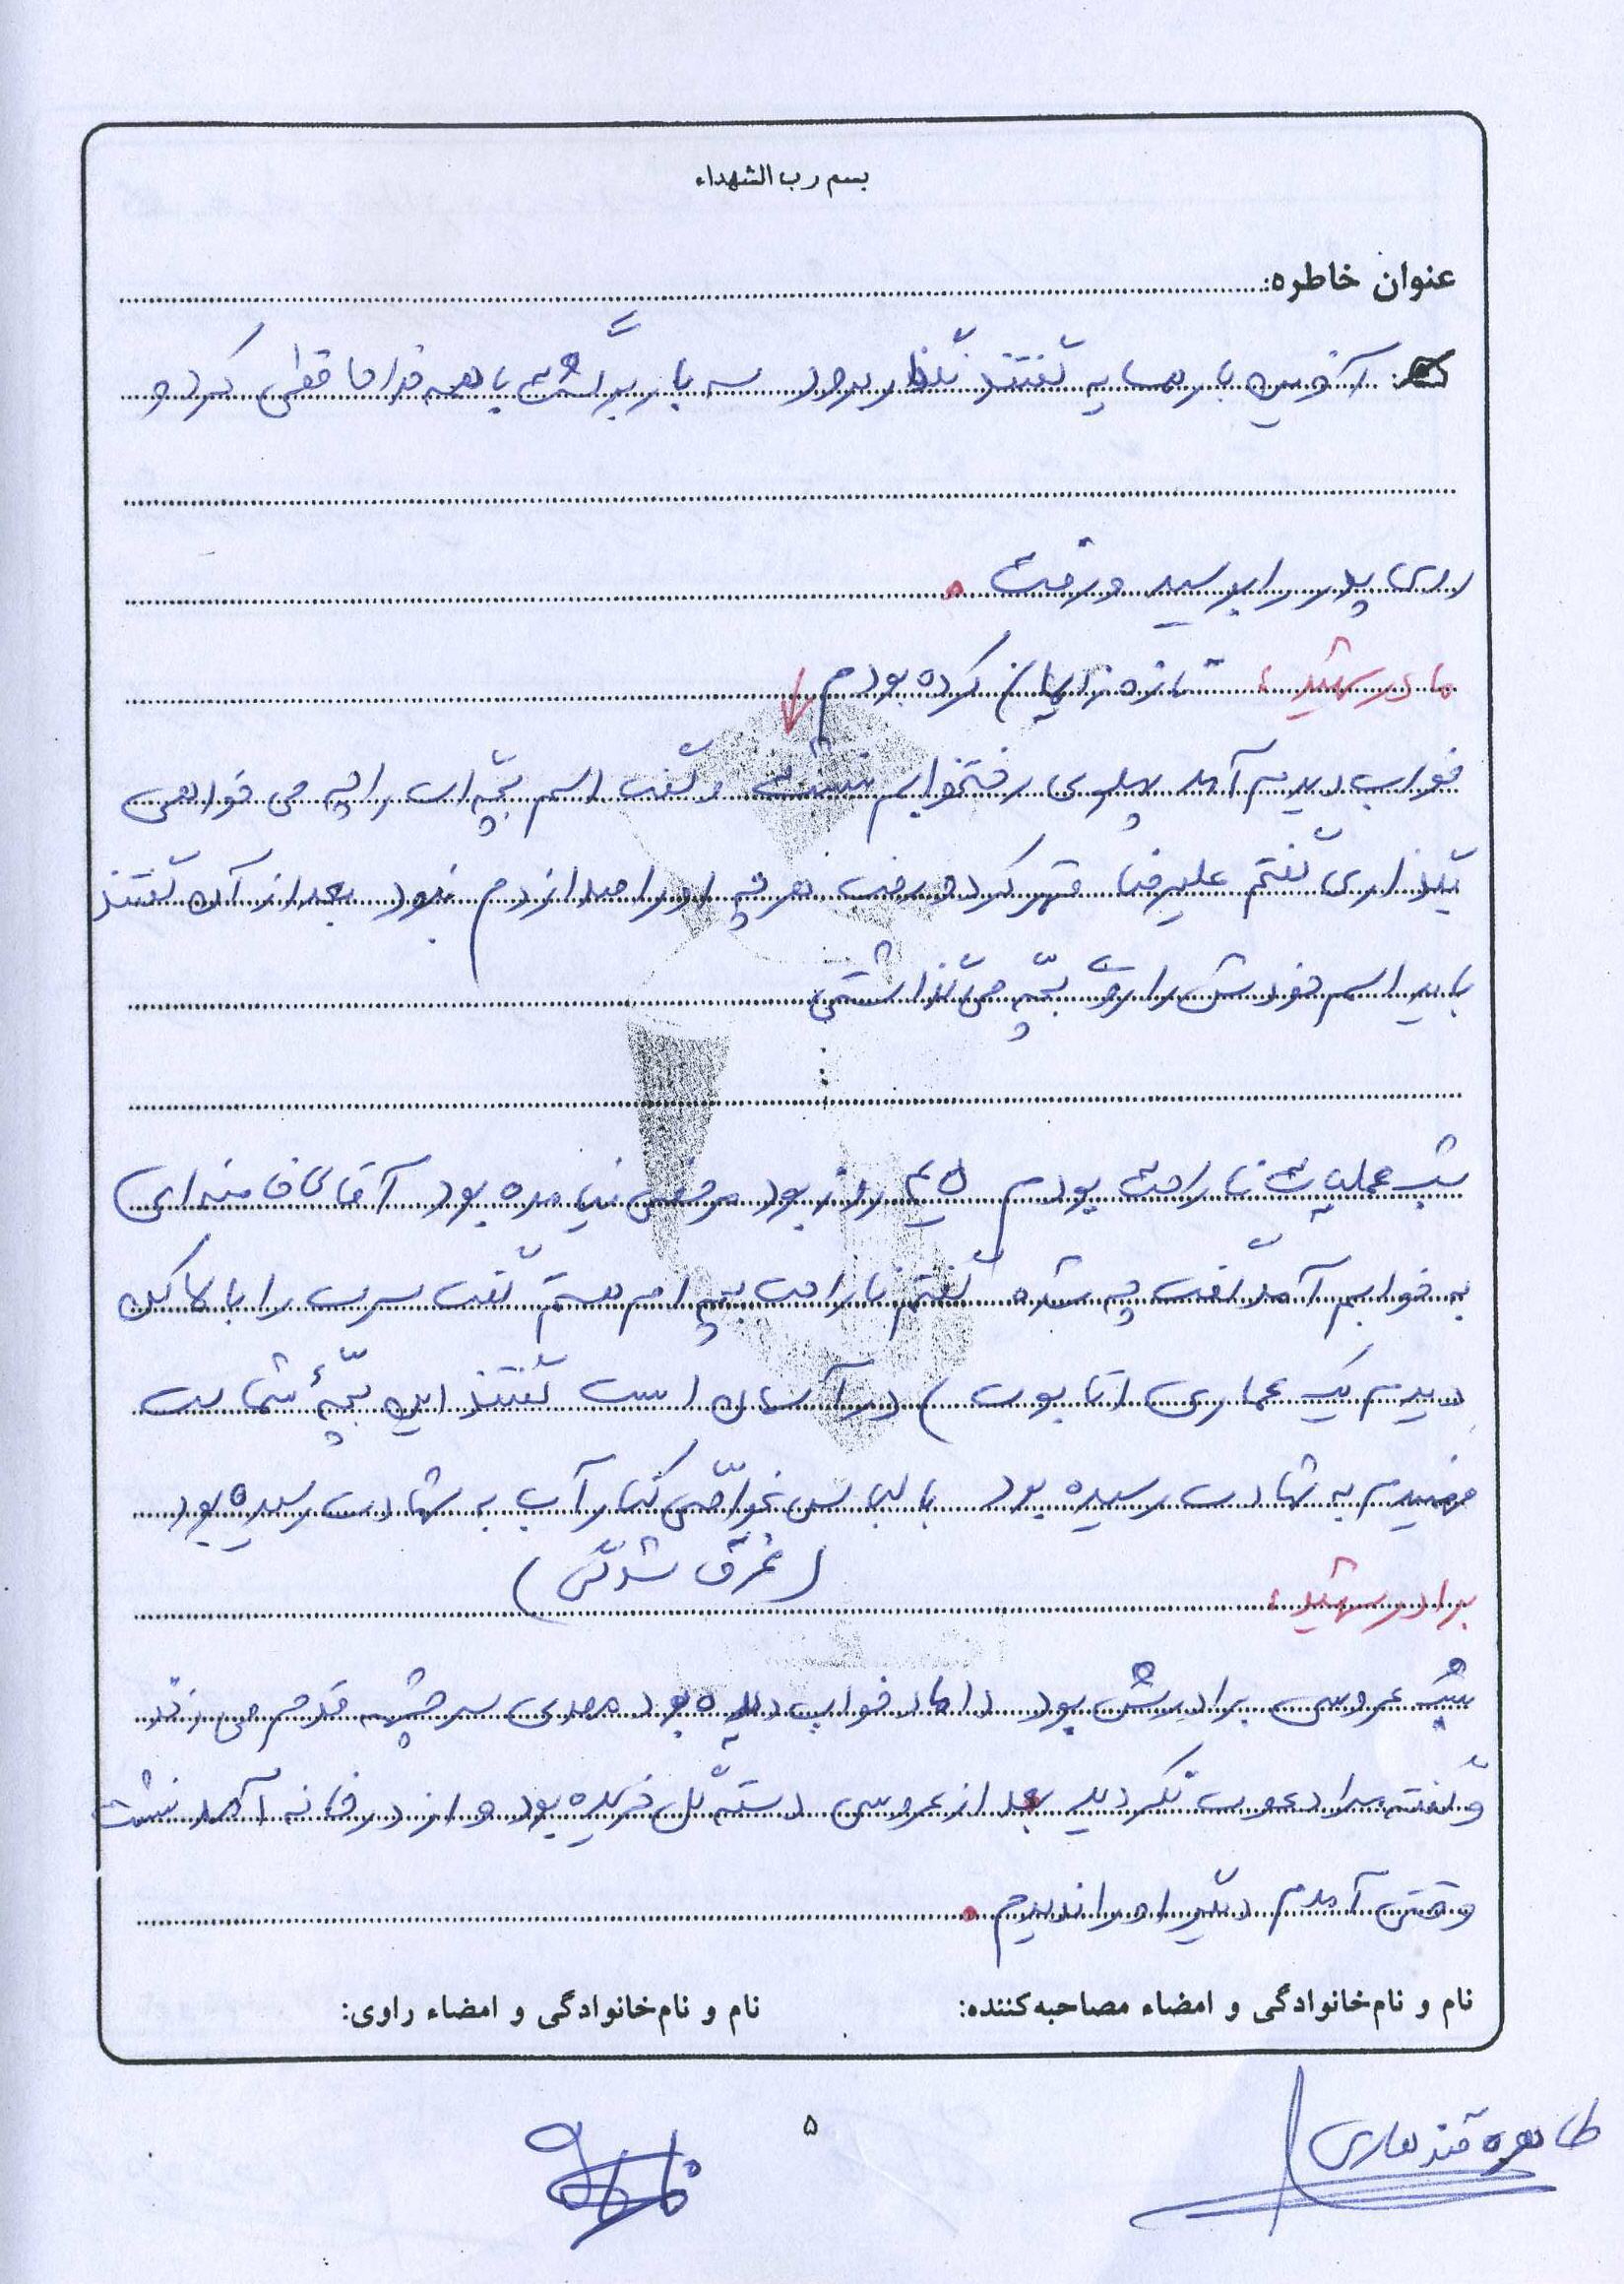 بسم رب الشهداء
عنوان خاطره:
آخرین بار همسایه گفتند نگذار برود سه بار برگشت با همه خداحافظی کرد و
روی پدر را بوسید و رفت.
مادر شهید: تازه زایمان کرده بودم
خواب دیدم آمد پهلوی رختخوابم نشست و گفت اسم بچّه ات را چه می خواهی
بگذاری گفتم علیرضا قهر کرد و رفت هر چه او را صدا زدم نبود بعد از آن گفتند
باید اسم خودش را روی بچّه می گذاشتی
شب عملیات ناراحت بودم ۴۵ روز بود مرخصی نیامده بود آقای خامنه ای
به خوابم آمد گفت چه شده گفتم ناراحت بچه ام هستم گفت سرت را بالا کن
دیدم یک عماری (تابوت) در آسمان است گفتند این بچّهٔ شماست
فهمیدم به شهادت رسیده بود با لباس غوّاصّی کنار آب به شهادت رسیده بود
(غرق شدگی)
برادر شهید:
شب عروسی برادرش بود داماد خواب دیده بود مهدی سر چشمه قدم می زند
و گفته مرا دعوت نکردید بعد از عروسی دسته گل خریده بود و از در خانه آمد نشست
وقتی آمدم دیگر او را ندیدم.
نام و نام‌خانوادگی و امضاء مصاحبه‌کننده:
نام و نام‌خانوادگی و امضاء راوی:
طاهره قندهاری
۵